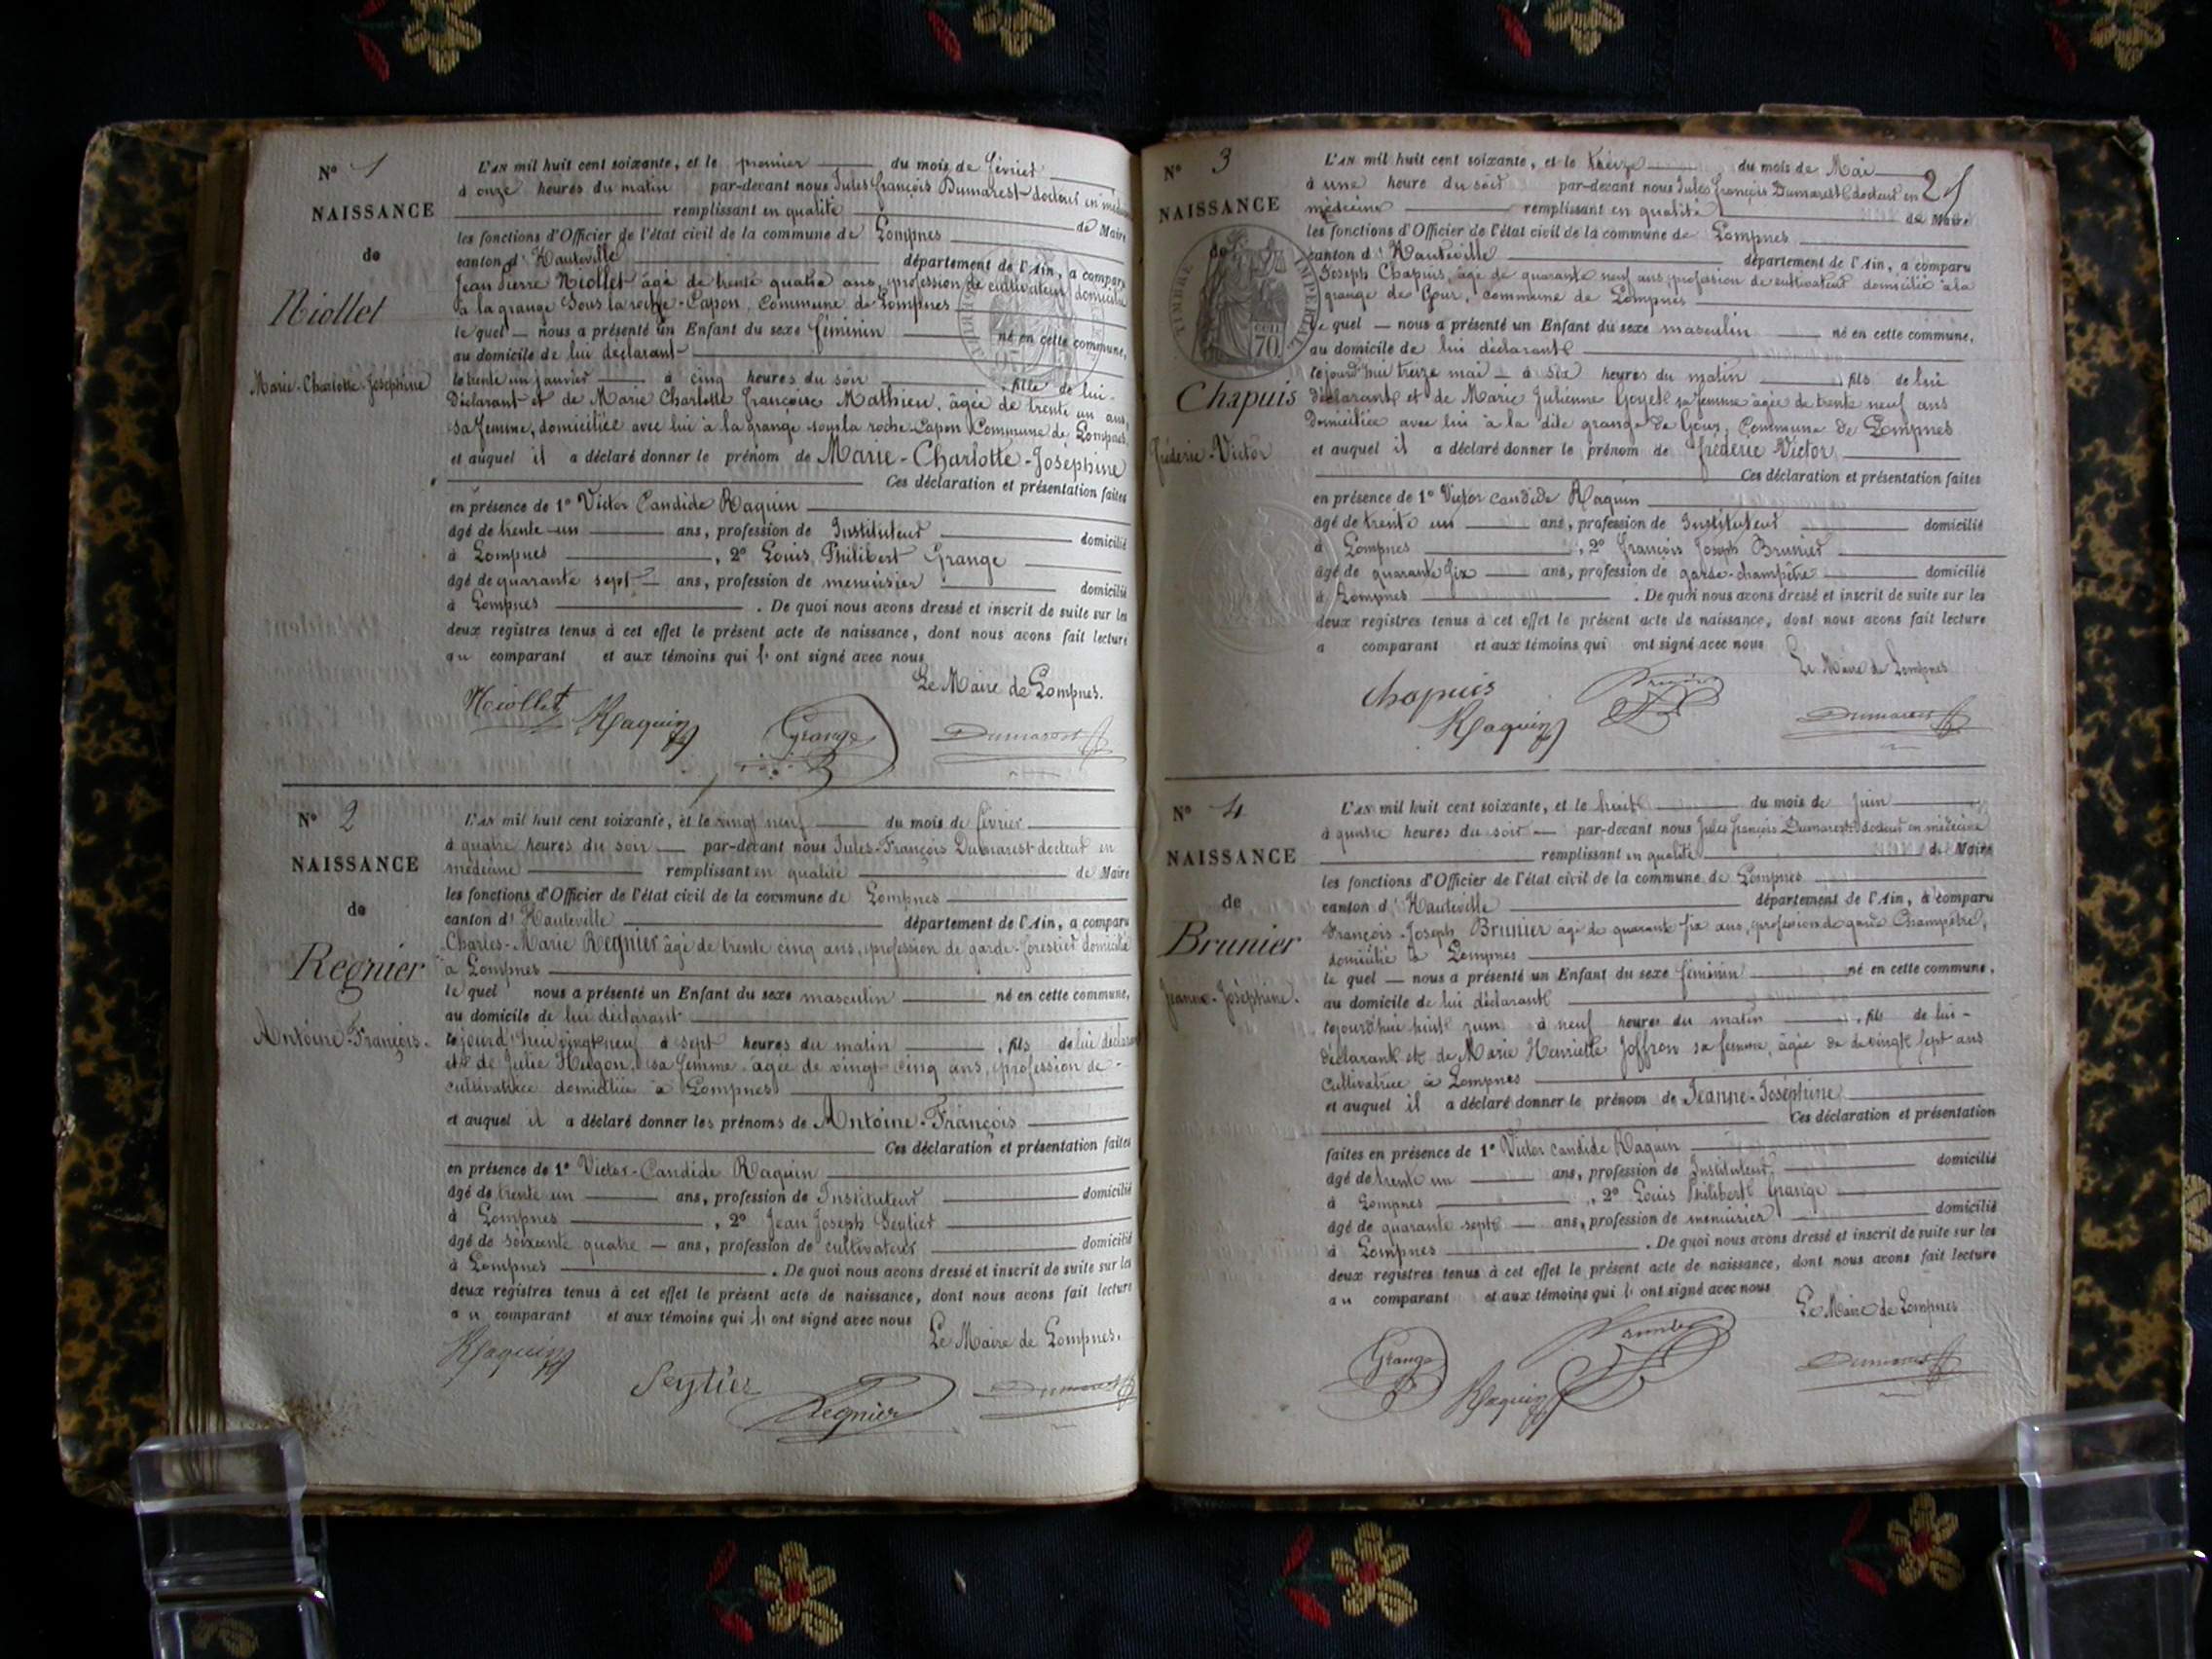 N° 1
NAISSANCE
de
Niollet
Marie-Charlotte-Joséphine
L'AN mil huit cent soixante, et le premier du mois de février
à onze heures du matin par-devant nous Jules françois Dumarest docteur en médecine
remplissant en qualité de Maire
les fonctions d'Officier de l'état civil de la commune de Lompnes
canton d' Hauteville département de l'Ain, a comparu
Jean Pierre Niollet âgé de trente quatre ans, profession de cultivateur domicilié
à la grange Sous la roche-Capon, Commune de Lompnes
le quel nous a présenté un Enfant du sexe féminin né en cette commune,
au domicile de lui déclarant
le trente un janvier à cinq heures du soir, fille de lui
Déclarant et de Marie Charlotte françoise Mathieu, âgée de trente un ans,
sa femme, domiciliée avec lui à la grange sous la roche-Capon Commune de Lompnes
et auquel il a déclaré donner le prénom de Marie-Charlotte-Joséphine
Ces déclaration et présentation faites
en présence de 1° Victor Candide Raquin
âgé de trente un ans, profession de Instituteur domicilié
à Lompnes, 2° Louis, Philibert Grange
âgé de quarante sept ans, profession de menuisier domicilié
à Lompnes. De quoi nous avons dressé et inscrit de suite sur les
deux registres tenus à cet effet le présent acte de naissance, dont nous avons fait lecture
au comparant et aux témoins qui l' ont signé avec nous
Le Maire de Lompnes.
Niollet Raquin Grange Dumarest
N° 2
NAISSANCE
de
Regnier
Antoine-François.
L'AN mil huit cent soixante, et le vingt neuf du mois de février
à quatre heures du soir par-devant nous Jules-François Dumarest docteur en
médecine remplissant en qualité de Maire
les fonctions d'Officier de l'état civil de la commune de Lompnes
canton d' Hauteville département de l'Ain, a comparu
Charles-Marie Regnier âgé de trente cinq ans, profession de garde-forestier domicilié
à Lompnes
le quel nous a présenté un Enfant du sexe masculin né en cette commune,
au domicile de lui déclarant
le jourd'hui vingt neuf à sept heures du matin, fils de lui déclarant
et de Julie Hugon, sa femme âgée de vingt cinq ans, profession de
cultivatrice domiciliée à Lompnes
et auquel il a déclaré donner les prénoms de Antoine-François
Ces déclaration et présentation faites
en présence de 1° Victor-Candide Raquin
âgé de trente un ans, profession de Instituteur domicilié
à Lompnes, 2° Jean Joseph Seytier
âgé de soixante quatre ans, profession de cultivateur domicilié
à Lompnes. De quoi nous avons dressé et inscrit de suite sur les
deux registres tenus à cet effet le présent acte de naissance, dont nous avons fait lecture
au comparant et aux témoins qui l' ont signé avec nous
Le Maire de Lompnes.
Raquin Seytier Regnier Dumarest
N° 3
NAISSANCE
de
TIMBRE IMPERIAL
cen
70
Chapuis
fréderic-Victor
L'AN mil huit cent soixante, et le treize du mois de Mai
à une heure du soir par-devant nous Jules françois Dumarest docteur en
médecine remplissant en qualité de Maire
les fonctions d'Officier de l'état civil de la commune de Lompnes
canton d' Hauteville département de l'Ain, a comparu
Joseph Chapuis, âgé de quarante neuf ans, profession de cultivateur domicilié à la
grange de Gour, commune de Lompnes
le quel nous a présenté un Enfant du sexe masculin né en cette commune,
au domicile de lui déclarant
le jourd'hui treize mai à six heures du matin fils de lui
déclarant et de Marie Julienne Goyet sa femme âgée de trente neuf ans
Domiciliée avec lui à la dite grange de Gour, Commune de Lompnes
et auquel il a déclaré donner le prénom de fréderic Victor
Ces déclaration et présentation faites
en présence de 1° Victor candide Raquin
âgé de trente un ans, profession de Instituteur domicilié
à Lompnes, 2° françois Joseph Brunier
âgé de quarante six ans, profession de garde-champêtre domicilié
à Lompnes. De quoi nous avons dressé et inscrit de suite sur les
deux registres tenus à cet effet le présent acte de naissance, dont nous avons fait lecture
a comparant et aux témoins qui ont signé avec nous
Le Maire de Lompnes
Chapuis Raquin Brunier Dumarest
N° 4
NAISSANCE
de
Brunier
Jeanne-Joséphine.
L'AN mil huit cent soixante, et le huit du mois de juin
à quatre heures du soir par-devant nous Jules françois Dumarest docteur en médecine
remplissant en qualité de Maire
les fonctions d'Officier de l'état civil de la commune de Lompnes
canton d' Hauteville département de l'Ain, a comparu
François-Joseph Brunier âgé de quarante six ans, profession de garde Champêtre,
domicilié à Lompnes
le quel nous a présenté un Enfant du sexe féminin né en cette commune,
au domicile de lui déclarant
le jourd'hui huit juin à neuf heures du matin, fils de lui
déclarant et de Marie Henriette Joffron sa femme, âgée de vingt sept ans
Cultivatrice à Lompnes
et auquel il a déclaré donner le prénom de Jeanne-Joséphine
Ces déclaration et présentation
faites en présence de 1° Victor candide Raquin
âgé de trente un ans, profession de Instituteur, domicilié
à Lompnes, 2° Louis Philibert Grange
âgé de quarante sept ans, profession de menuisier domicilié
à Lompnes. De quoi nous avons dressé et inscrit de suite sur les
deux registres tenus à cet effet le présent acte de naissance, dont nous avons fait lecture
au comparant et aux témoins qui l' ont signé avec nous
Le Maire de Lompnes
Grange Raquin Brunier Dumarest